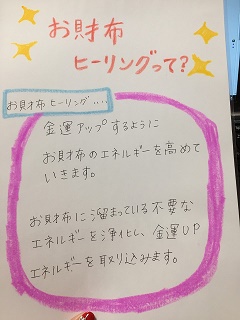 お財布
ヒーリングって?
お財布ヒーリング....
金運アップするように
お財布のエネルギーを高めて
いきます。
お財布に溜まっている不要な
エネルギーを浄化し、金運UP
エネルギーを取り込みます。